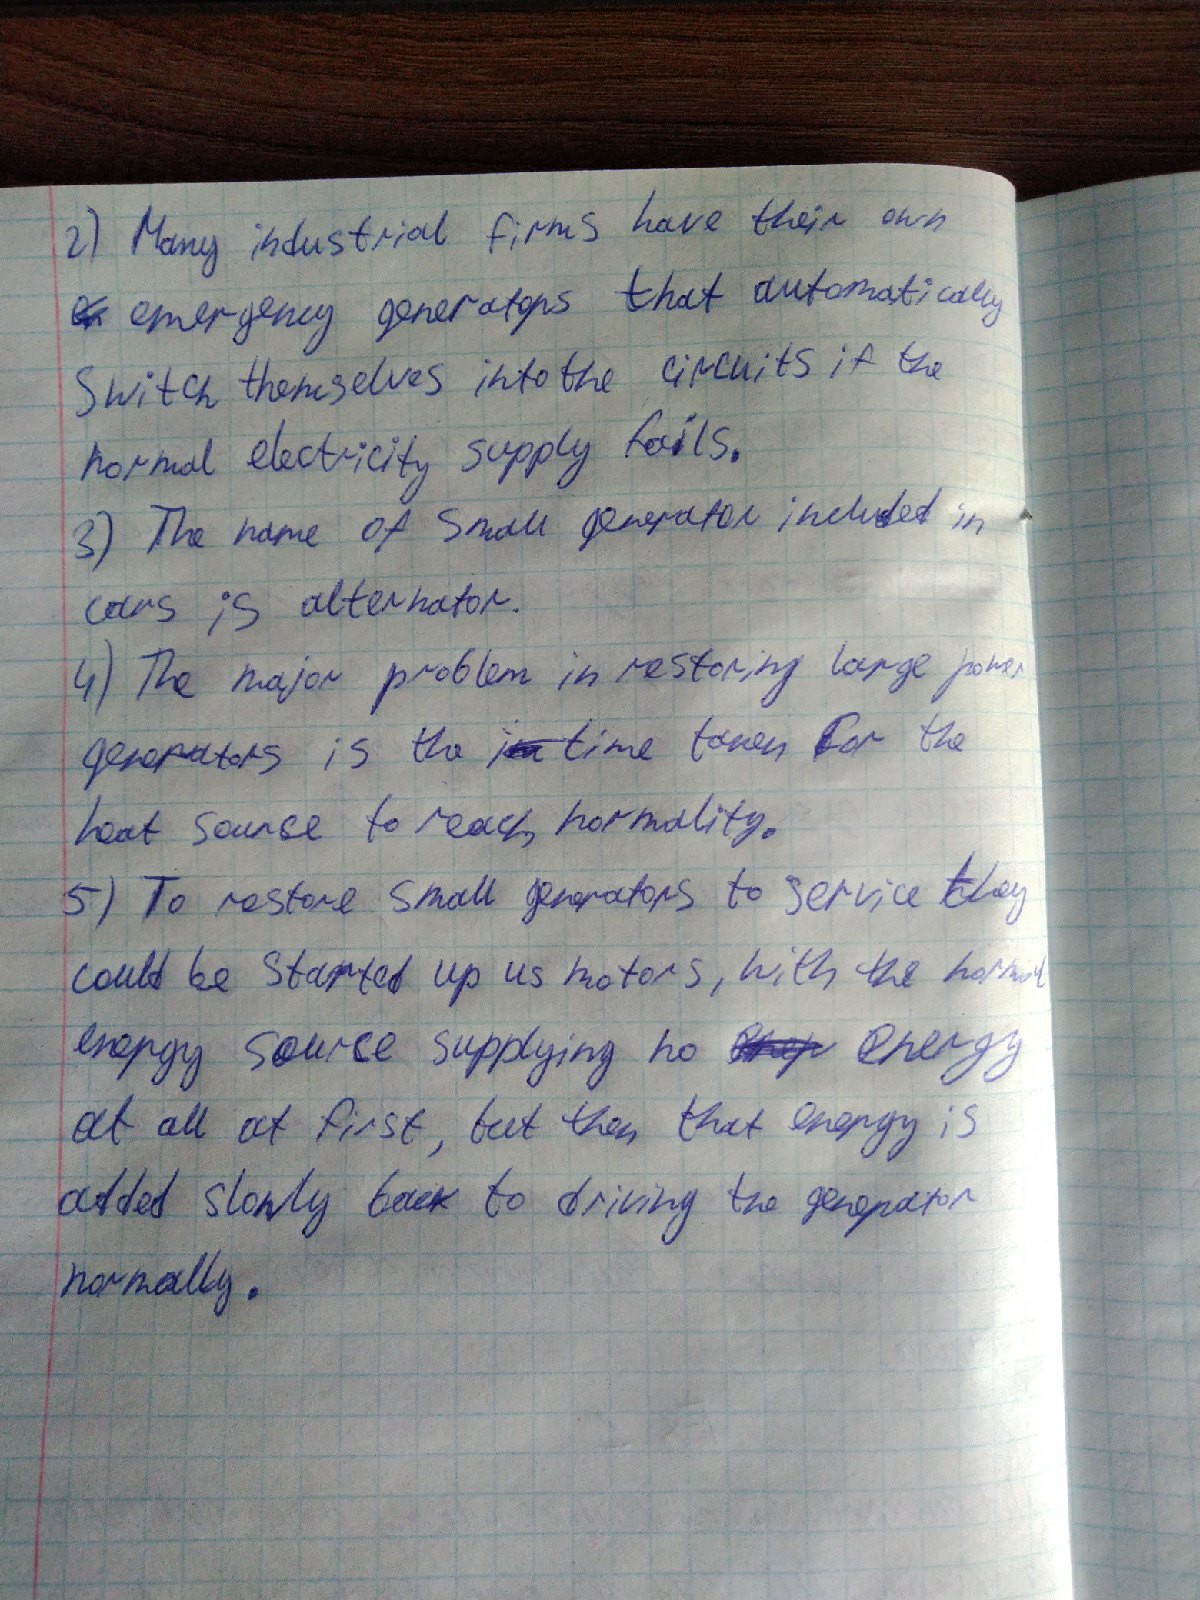 2) Many industrial firms have their own
emergency generators that automatically
switch themselves into the circuits if the
normal electricity supply fails.
3) The name of small generator included in
cars is alternator.
4) The major problem in restoring large power
generators is the time taken for the
heat source to reach normality.
5) To restore small generators to service they
could be started up us motors, with the normal
energy source supplying no energy
at all at first, but then that energy is
added slowly back to driving the generator
normally.